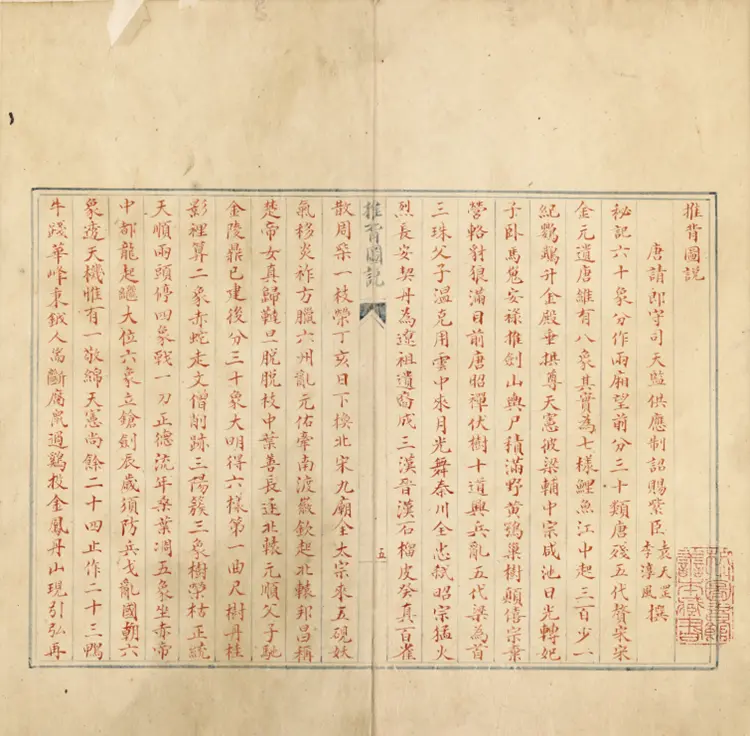 推背圖說
唐請郎守司天監供應制詔賜紫臣 袁天罡 李淳風 撰
秘記六十象分作兩廂望前分三十類唐殘五代賛宋宋
金元遺唐雖有八象其實為七樣鯉魚江中起三百少一
紀鸚鵡升金殿垂拱尊天憲彼梁輔中宗咸池日光轉妃
子卧馬嵬安祿推劍山興尸積滿野黃鴉巢樹顛僖宗棄
營輅豺狼滿目前唐昭禪伏樹十道興兵亂五代梁為首
三珠父子溫克用雲中來月光舞秦川全忠弒昭宗猛火
烈長安契丹為遼祖遺裔成三漢晉漢石榴皮癸真百雀
推背圖說
五
散周柴一枝榮丁亥日下換北宋九廟全太宗來五硯妖
氣移炎祚方臘六州亂元佑牽南渡徽欽起北轅邦昌稱
楚帝女真歸韃旦脫脫枝中葉善長逐北轅元順父子馳
金陵鼎已建後分三十象大明得六樣第一曲尺樹丹桂
影裡算二象赤蛇走文僧削跡三陽簇三象樹榮枯正統
天順兩頭停四象戰一刀正德流年桑葉凋五象坐赤帝
中都龍起繼大位六象立鎗劍辰歲須防兵戈亂國朝六
象透天機惟有一敬綿天憲尚餘二十四止作二十三鴨
牛踐華峰東鉞人禼斷腐鼠過鷄投金鳳丹山現引弘再